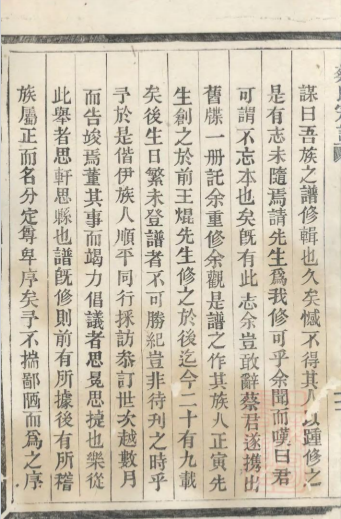 謀曰吾族之譜修輯也久矣憾不得其人以踵修之
是有志未隨焉請先生爲我修可乎余聞而嘆曰君
可謂不忘本也矣旣有此志余豈敢辭蔡君遂携出
舊牒一册託余重修余觀是譜之作其族人正寅先
生創之於前王焜先生修之於後迄今二十有九載
矣後生日繁未登譜者不可勝紀豈非待刋之時乎
予於是偕伊族人順平同行採訪叅訂世次越數月
而告竣焉董其事而竭力倡議者思冕思捷也樂從
此舉者思軒思縣也譜旣修則前有所據後有所稽
族屬正而名分定尊卑序矣予不揣鄙陋而爲之序